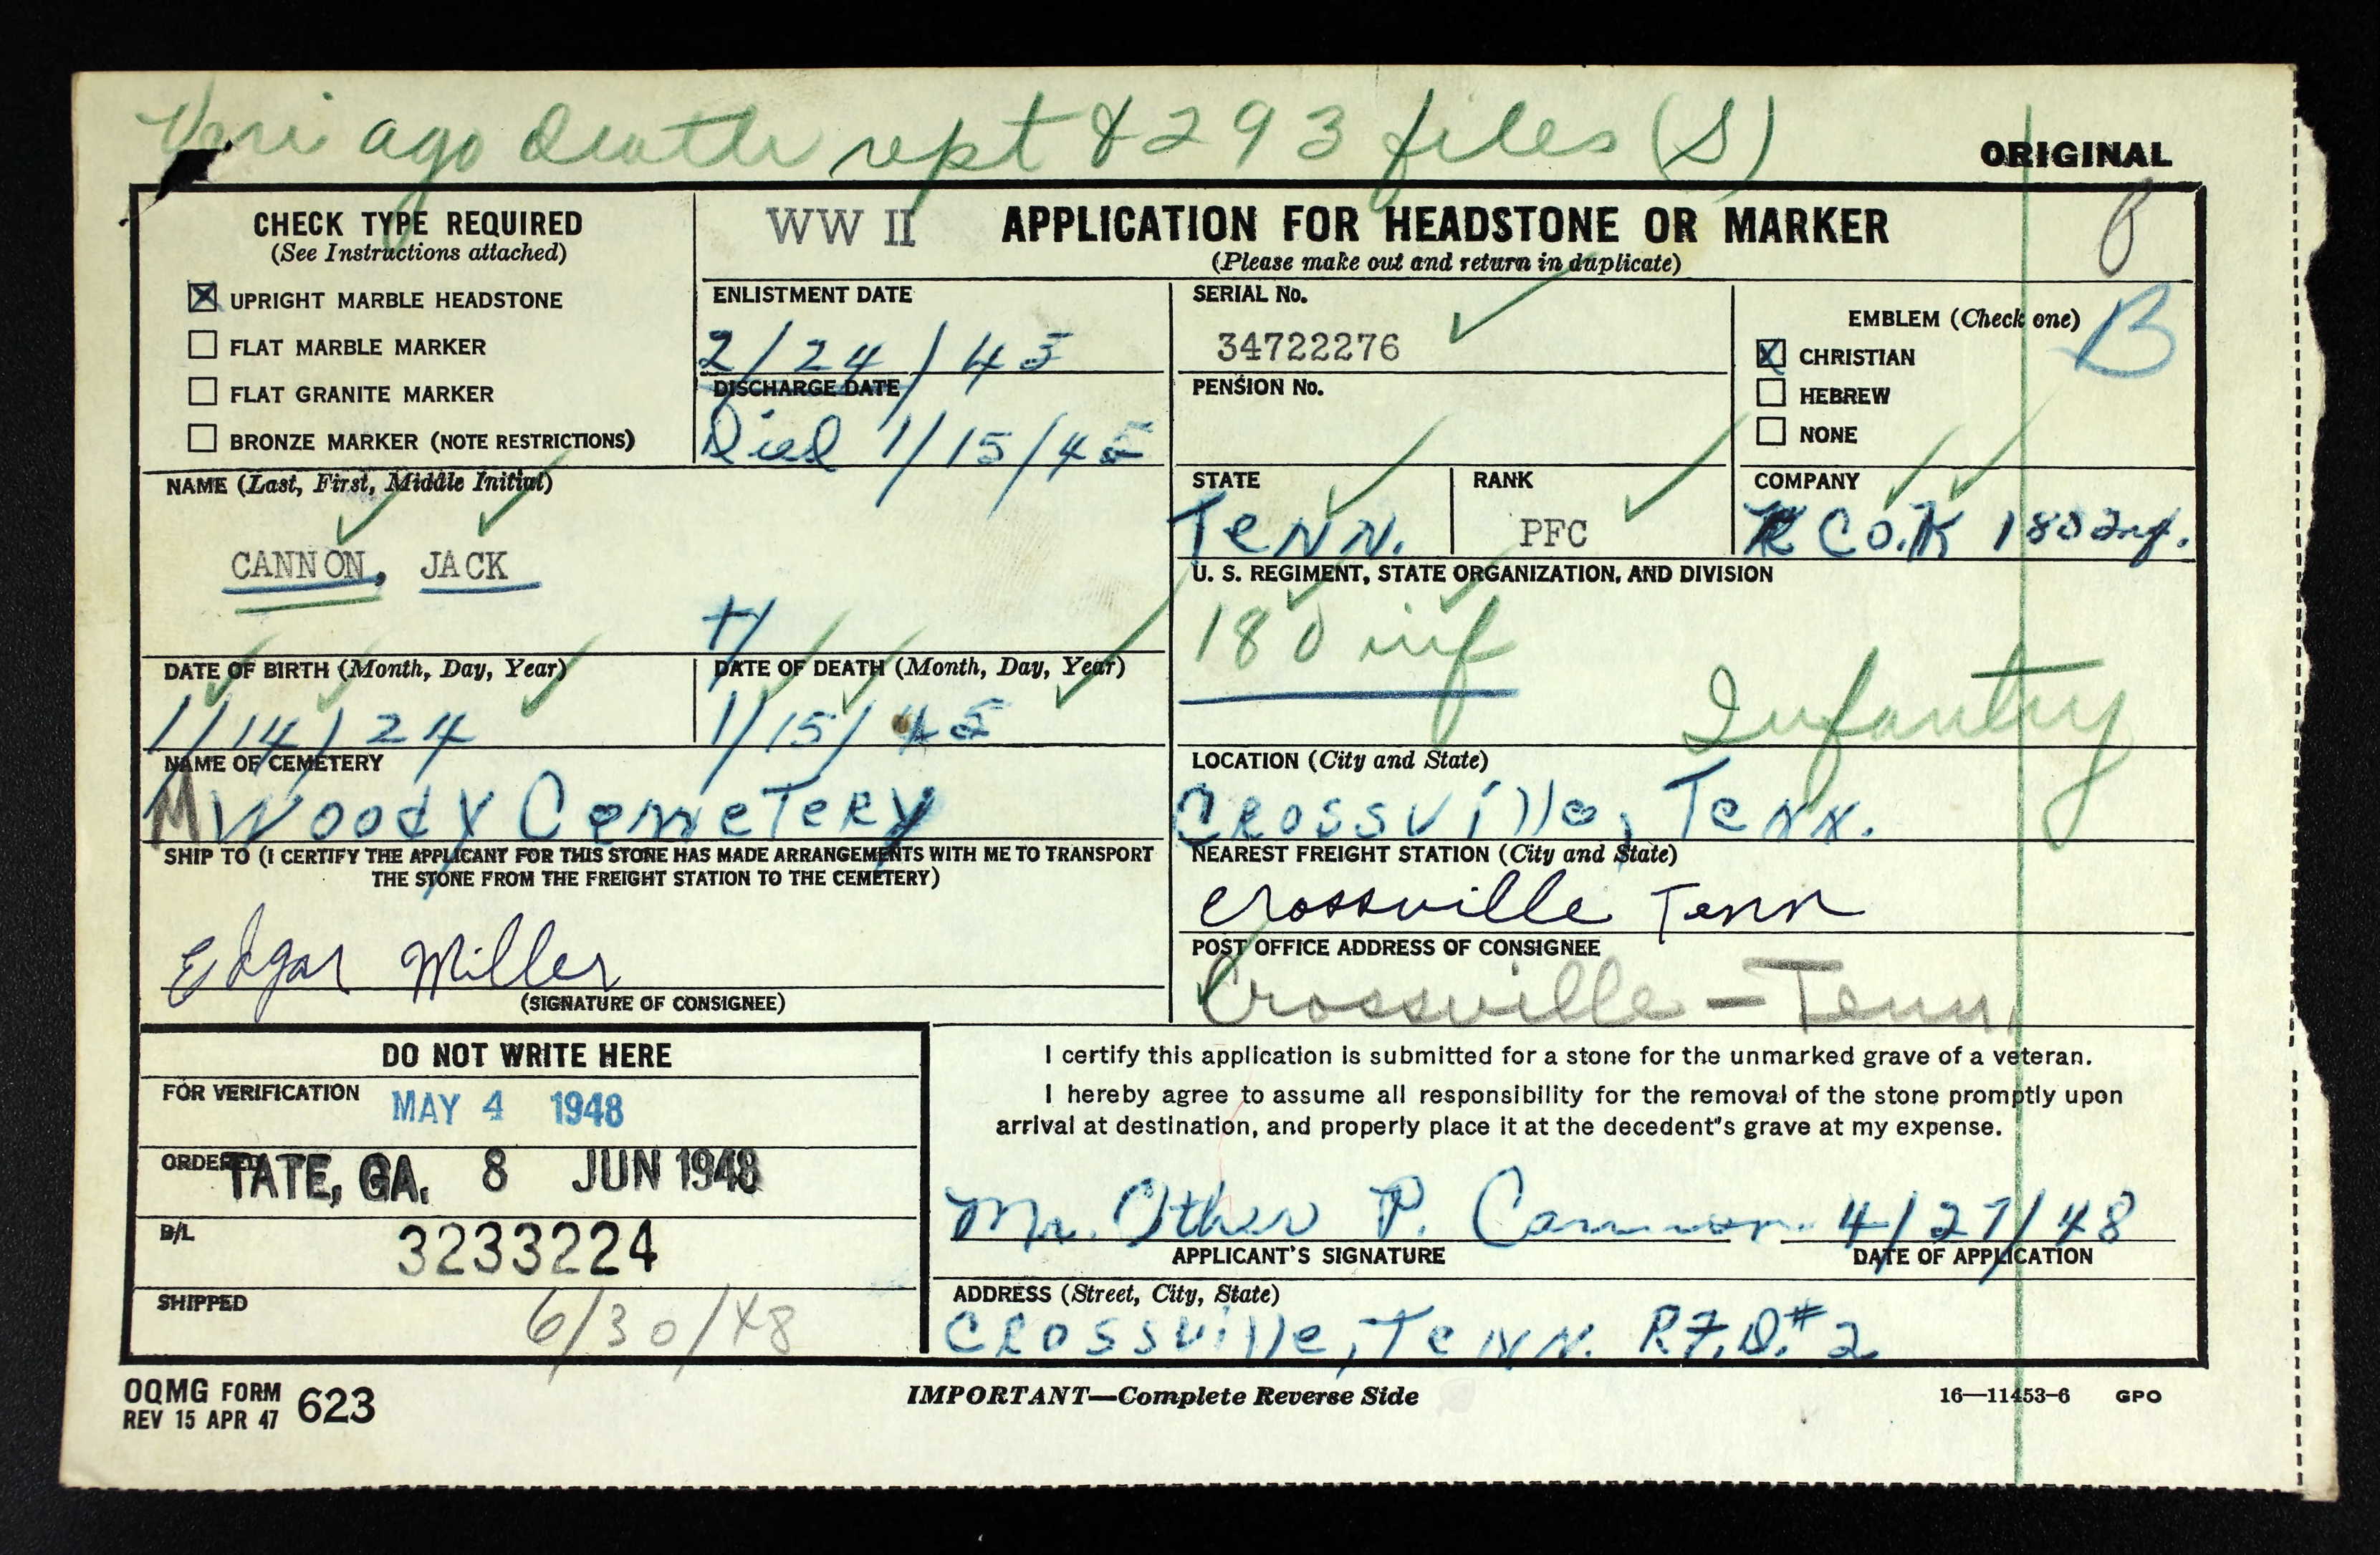 ago death rept 8293 files (S)
ORIGINAL
CHECK TYPE REQUIRED
(See Instructions attached)
UPRIGHT MARBLE HEADSTONE
FLAT MARBLE MARKER
FLAT GRANITE MARKER
BRONZE MARKER (NOTE RESTRICTIONS)
WW II APPLICATION FOR HEADSTONE OR MARKER
(Please make out and return in duplicate)
ENLISTMENT DATE
2/24/43
DISCHARGE DATE
Died 1/15/45
SERIAL No.
34722276
PENSION No.
EMBLEM (Check one)
B
CHRISTIAN
HEBREW
NONE
NAME (Last, First, Middle Initial)
CANNON, JACK
STATE
TENN.
RANK
PFC
COMPANY
CO.K 180 Inf.
U. S. REGIMENT, STATE ORGANIZATION, AND DIVISION
180 inf
Infantry
DATE OF BIRTH (Month, Day, Year)
1/14/24
DATE OF DEATH (Month, Day, Year)
1/15/45
NAME OF CEMETERY
Woody Cemetery
LOCATION (City and State)
Crossville, Tenn.
SHIP TO (I CERTIFY THE APPLICANT FOR THIS STONE HAS MADE ARRANGEMENTS WITH ME TO TRANSPORT
THE STONE FROM THE FREIGHT STATION TO THE CEMETERY)
Edgar Miller
(SIGNATURE OF CONSIGNEE)
NEAREST FREIGHT STATION (City and State)
Crossville Tenn
POST OFFICE ADDRESS OF CONSIGNEE
Crossville - Tenn.
DO NOT WRITE HERE
FOR VERIFICATION MAY 4 1948
ORDERED TATE, GA. 8 JUN 1948
B/L 3233224
SHIPPED 6/30/48
I certify this application is submitted for a stone for the unmarked grave of a veteran.
I hereby agree to assume all responsibility for the removal of the stone promptly upon
arrival at destination, and properly place it at the decedent"s grave at my expense.
Mr. Other P. Cannon. 4/27/48
APPLICANT'S SIGNATURE DATE OF APPLICATION
ADDRESS (Street, City, State)
Crossville, Tenn. R.F.D.#2
OQMG FORM 623
REV 15 APR 47
IMPORTANT—Complete Reverse Side
16—11453-6 GPO